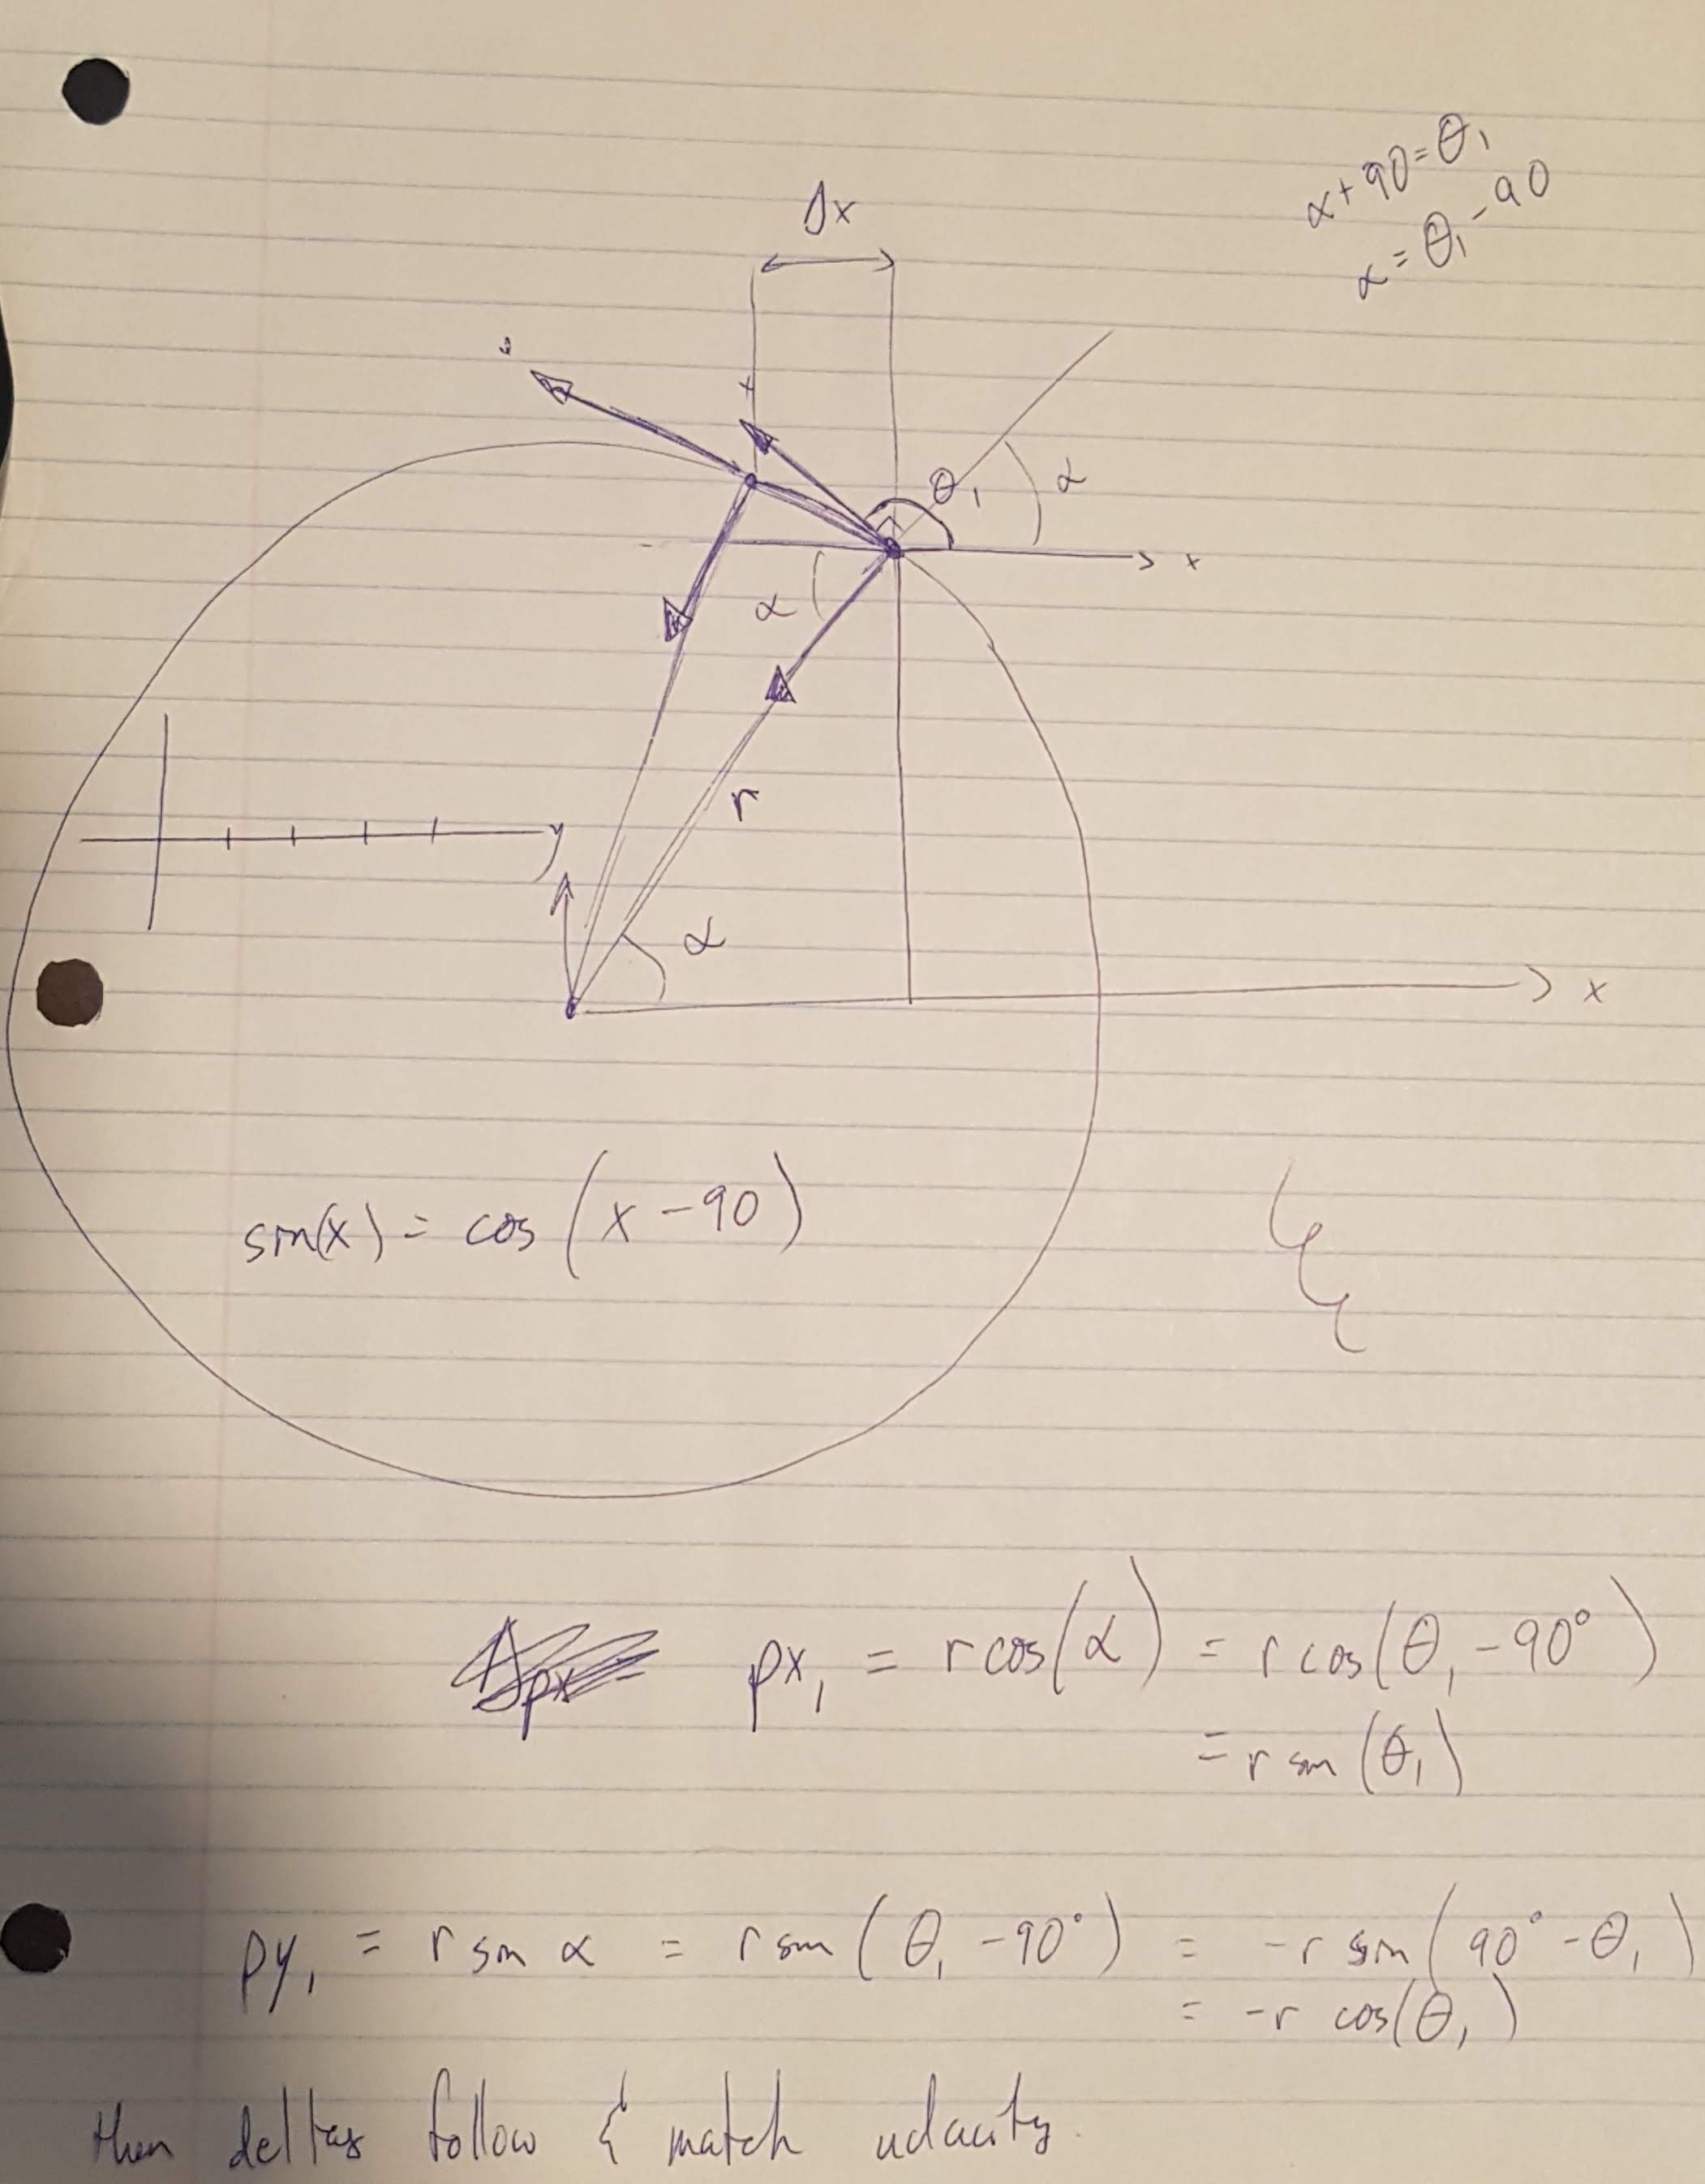 α + 90 = θ₁
α = θ₁ - 90
Δx
θ₁
α
x
α
r
y
α
x
sin(x) = cos(x - 90)
px₁ = r cos(α) = r cos(θ₁ - 90°)
= r sin(θ₁)
py₁ = r sin α = r sin(θ₁ - 90°) = -r sin(90° - θ₁)
= -r cos(θ₁)
then deltas follow & match udacity.